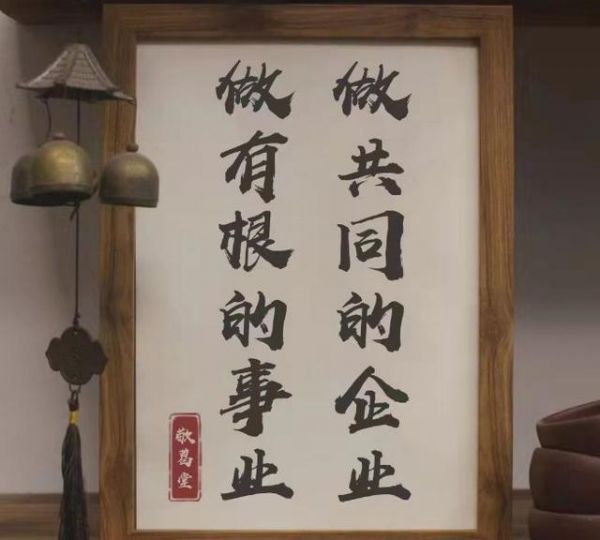 做共同的企业
做有根的事业
敬葛堂